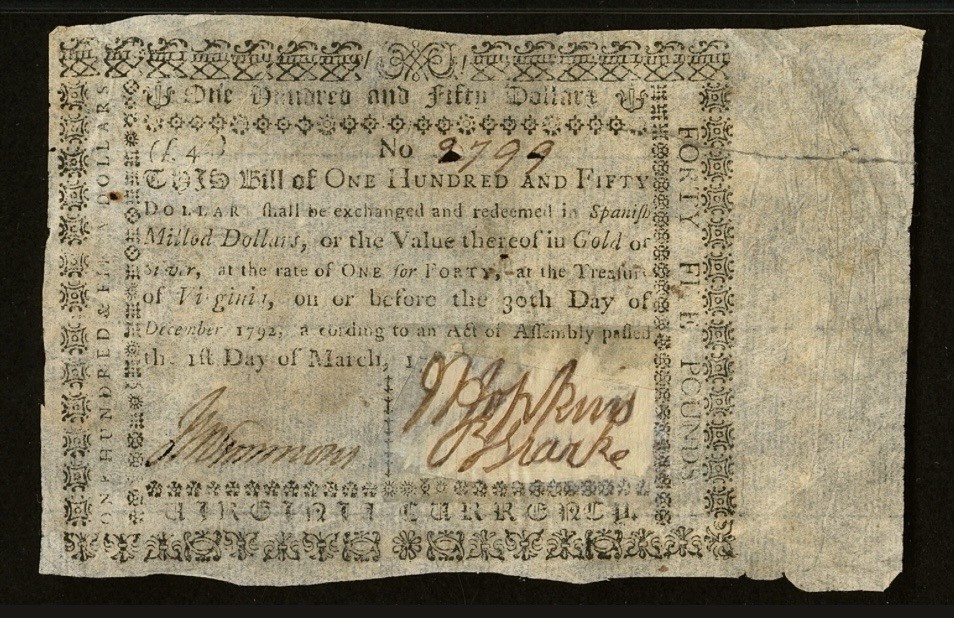 One Hundred and Fifty Dollars
(£ 45)
No 2799
THIS Bill of ONE HUNDRED AND FIFTY
DOLLAR shall be exchanged and redeemed in Spanish
Milled Dollars, or the Value thereof in Gold or
Silver, at the rate of ONE for FORTY, at the Treasury
of Virginia, on or before the 30th Day of
December 1792, according to an Act of Assembly passed
the 1st Day of March,
J Hopkins
VIRGINIA CURRENCY.
ONE HUNDRED & FIFTY DOLLARS
FORTY FIVE POUNDS